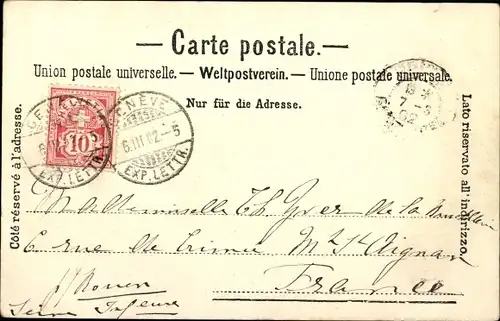 — Carte postale. —
Union postale universelle. — Weltpostverein. — Unione postale universale.
Nur für die Adresse.
Côté réservé à l'adresse.
Lato riservato all' indirizzo.
10
GENÈVE
6 III 02 – 5
EXP. LETTR.
EXP. LETTR.
7 - 3
02
Mademoiselle Th. Yver de la
6 rue Ste Mt St Aignan
p/ Rouen France
Seine Infeure